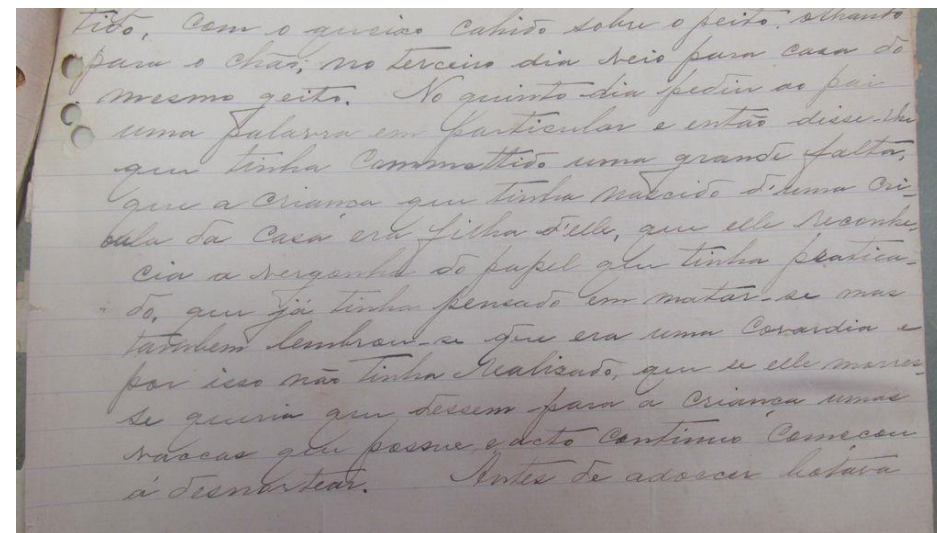 tido, com o queixo cahido sobre o peito, olhando
para o chão; no terceiro dia veio para casa do
mesmo geito. No quinto dia pediu ao pai
uma palavra em particular e então disse-lhe
que tinha commettido uma grande falta,
que a criança que tinha nascido d'uma cri-
oula da casa era filha d'elle, que elle reconhe-
cia a vergonha do papel que tinha pratica-
do, que já tinha pensado em matar-se mas
tambem lembrou-se que era uma covardia e
por isso não tinha realisado, que se elle morres-
se queria que dessem para a criança umas
vaccas que possue, e acto continuo começou
á desnortear. Antes de adoecer botava